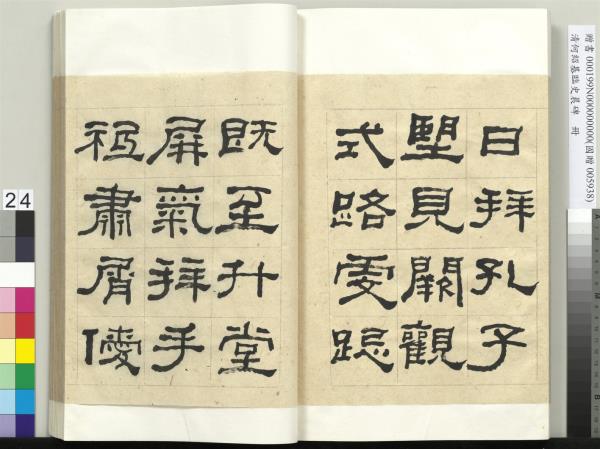 贈書 000199N000000000(國贈 005938)
清何紹基臨史晨碑 冊
日拜孔子
朢見闕觀
式路虔跽
既至升堂
屏氣拜手
祗肅屑僾
24
A
M
B